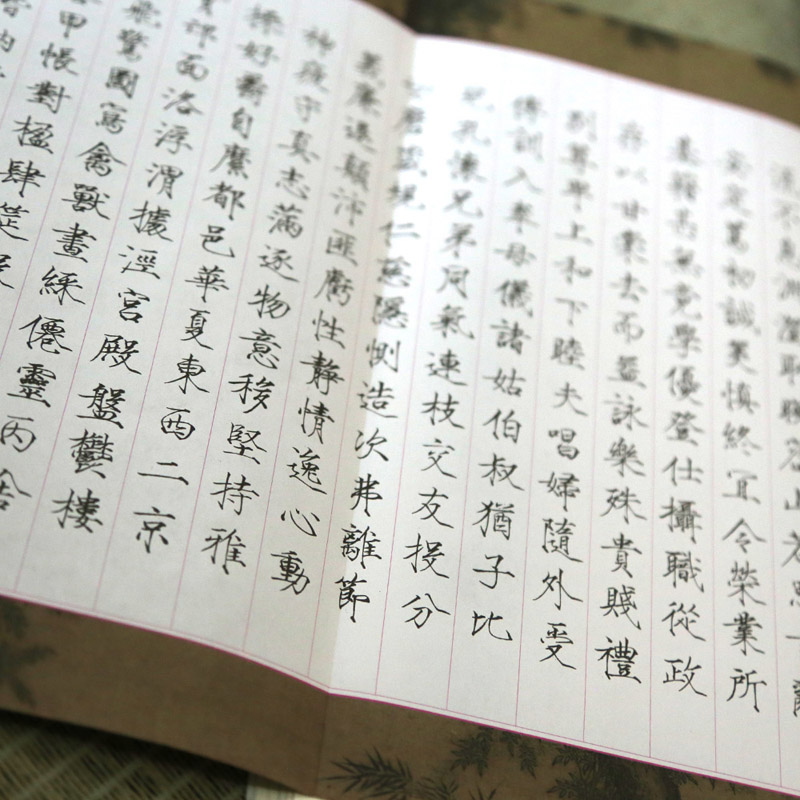 流不息淵澄取映容止若思
安定篤初誠美慎終宜令榮業所
基籍甚無竟學優登仕攝職從政
存以甘棠去而益詠樂殊貴賤禮
別尊卑上和下睦夫唱婦隨外受
傅訓入奉母儀諸姑伯叔猶子比
兒孔懷兄弟同氣連枝交友投分
磨箴規仁慈隱惻造次弗離節
義廉退顛沛匪虧性靜情逸心動
神疲守真志滿逐物意移堅持雅
操好爵自縻都邑華夏東西二京
邙面洛浮渭據涇宮殿盤鬱樓
飛驚圖寫禽獸畫綵僊靈丙舍
甲帳對楹肆筵設
納